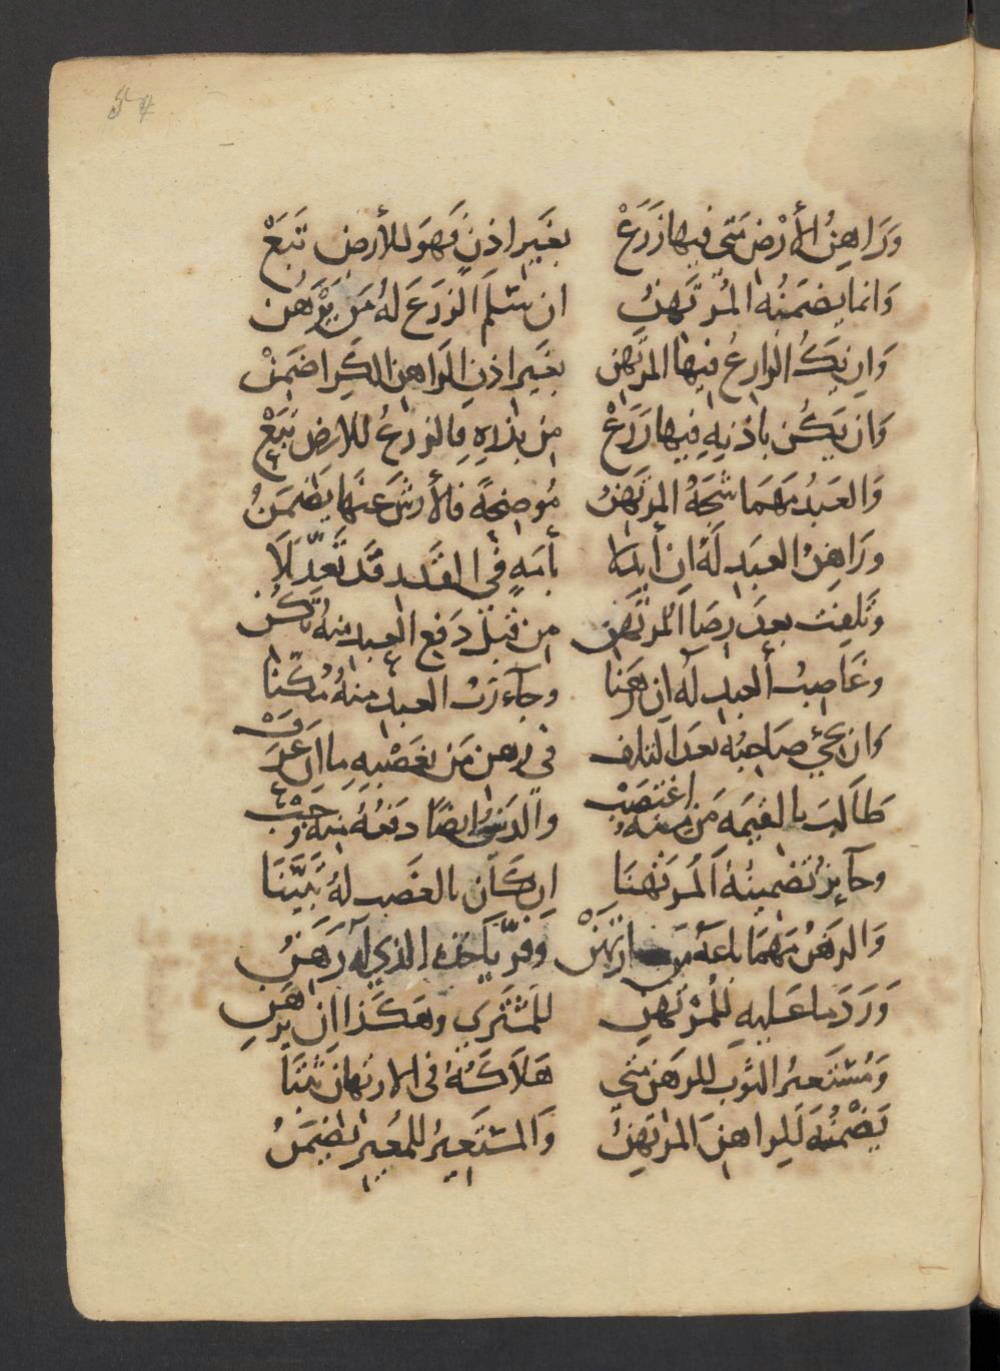 وَرَاهِنُ الأَرْضِ مَتَى فِيهَا زَرَعْ بِغَيْرِ اذنٍ فَهَوَ للأَرضِ تَبَعْ
وَانما يضمَنُه المُرتَهِنُ ان سَلَّمَ الزرَعَ لهُ مَن يَرْهَن
وَان يَكُ الزارعُ فيها المرتَهِن بغَيرِ اذنِ الراهِنِ الكَرا ضَمِنْ
وَان يَكُن باذنِهِ فِيهَا زَرَعْ مِن بذرِهِ فالزرعُ للارضِ تَبَعْ
وَالعَبدُ مَهمَا شَجَّهُ المرتَهِنُ مُوضِحَةً فالأَرشَ عَنهَا يَضمَنُ
ورَاهِنُ العبَدِ لَهُ ان أَبدَلا بأمَةٍ في العَقدِ قَد تَعَدَّلَا
وتَلِفَت بعدَ رِضَا المرتَهِن مِن قَبلِ دَفعِ العبدِ منهُ تكُن
وغَاصِبُ العبدِ لَه ان رَهَنا وجاءَ رَبُ العبدِ منهُ مُمَكِّنَا
وَان يجئ صَاحِبُه بعدَ التلف في رهنِ مَن يغصَبهِ ما ان عَرَفْ
طَالَبَ بالقيمَه مَن منه اغتصَبْ والدَينُ ايضًا دَفعُهُ منهُ وَجَبْ
وجآيزٌ تضمينُهُ المُرتَهِنَا ان كَان بالغصَبِ لهُ تَبَيَّنَا
وَالرهنُ مَهمَا باعَهُ مَن ارتَهَنْ وفرّ يَأخذه الذي له رَهَنُ
وَرَدّ مَا عَليهِ للمُرتَهِنِ للمشتَرِي وهَكَذَا ان يرهَنِ
وَمُستَعيرُ الثوبِ للرهَنِ مَتى هَلَاكَهُ في الارتهانِ ثَبَتَا
يَضمَنُه لِلراهِنَ المرتَهِنُ وَالمستَعيرُ للمُعِيرِ يَضمَنُ